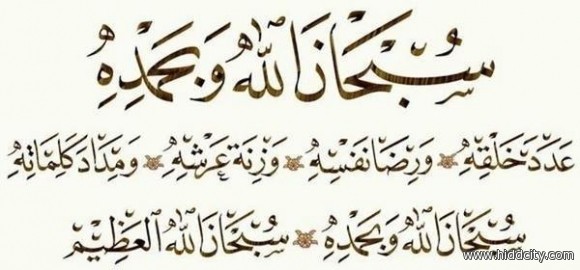 سُبْحَانَ اللهِ وَبِحَمْدِهِ
عَدَدَ خَلْقِهِ وَرِضَا نَفْسِهِ وَزِنَةَ عَرْشِهِ وَمِدَادَ كَلِمَاتِهِ
سُبْحَانَ اللهِ وَبِحَمْدِهِ سُبْحَانَ اللهِ الْعَظِيْمِ
www.hiddcity.com